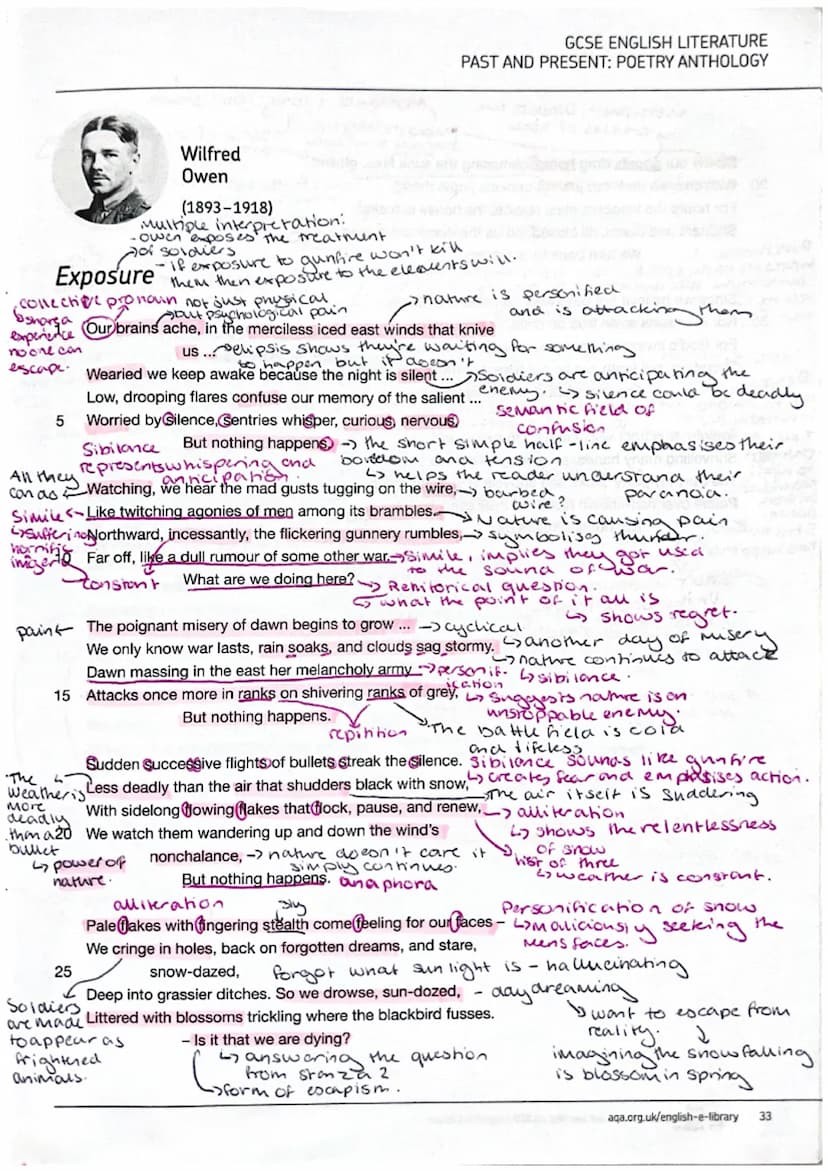 GCSE ENGLISH LITERATURE
PAST AND PRESENT: POETRY ANTHOLOGY
Wilfred
Owen
(1893–1918)
Multiple interpretation:
- Owen exposes the treatment
of soldiers
- if exposure to gunfire won't kill
them then exposure to the elements will.
Exposure
collective pronoun
↳ shared experience no one can escape.
not just physical
but psychological pain
→ nature is personified
and is attacking them
1 Our brains ache, in the merciless iced east winds that knive
us ... → elipsis shows they're waiting for something
to happen but it doesn't
Wearied we keep awake because the night is silent ... → Soldiers are anticipating the
enemy. ↳ silence could be deadly
Low, drooping flares confuse our memory of the salient ...
semantic field of
confusion
5 Worried by silence, sentries whisper, curious, nervous,
But nothing happens. → the short simple half-line emphasises their
boredom and tension
↳ helps the reader understand their
paranoia.
Sibilance
represents whispering and
anticipation.
All they
can do ←
Watching, we hear the mad gusts tugging on the wire, → barbed
wire?
Simile ←
↳ Suffering
horrific
imagery
Like twitching agonies of men among its brambles. → Nature is causing pain
Northward, incessantly, the flickering gunnery rumbles, → symbolises thunder.
10 Far off, like a dull rumour of some other war. → Simile, implies they got used
to the sound of war.
constant
What are we doing here? → Rehitorical question.
↳ what the point of it all is
↳ shows regret.
paint ←
The poignant misery of dawn begins to grow ... → cyclical
↳ another day of misery
We only know war lasts, rain soaks, and clouds sag stormy.
↳ nature continues to attack
↳ sibilance.
Dawn massing in the east her melancholy army → personification
15 Attacks once more in ranks on shivering ranks of grey, ↳ Suggests nature is an
unstoppable enemy.
But nothing happens.
repitition
The battlefield is cold
and lifeless
Sudden successive flights of bullets streak the silence. Sibilance sounds like gunfire
↳ creates fear and emphasises action.
The
weather is
more
deadly
than a
bullet
↳ power of
nature.
Less deadly than the air that shudders black with snow,
The air itself is suddering
With sidelong flowing flakes that flock, pause, and renew, ↳ alliteration
↳ shows the relentlessness
of snow
20 We watch them wandering up and down the wind's
list of three
↳ weather is constant.
nonchalance, → nature doesn't care it
simply continues.
But nothing happens. anaphora
alliteration
sly
Personification of snow
↳ maliciously seeking the
mens faces.
Pale flakes with fingering stealth come feeling for our faces –
We cringe in holes, back on forgotten dreams, and stare,
25 snow-dazed, forgot what sun light is - hallucinating
Soldiers
are made
to appear as
frightened
animals.
Deep into grassier ditches. So we drowse, sun-dozed, - daydreaming
↳ want to escape from
reality.
Littered with blossoms trickling where the blackbird fusses.
– Is it that we are dying?
imagining the snow falling
is blossom in spring
↳ answering the question
from stanza 2
↳ form of escapism.
aqa.org.uk/english-e-library 33